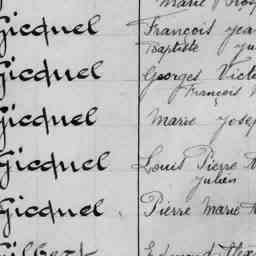 Marie
Gicquel François Jea
Baptiste Ju
Gicquel Georges Victo
François
Gicquel Marie Josep
Gicquel Louis Pierre M
Julien
Gicquel Pierre Marie
Gilbert Edmond Alex